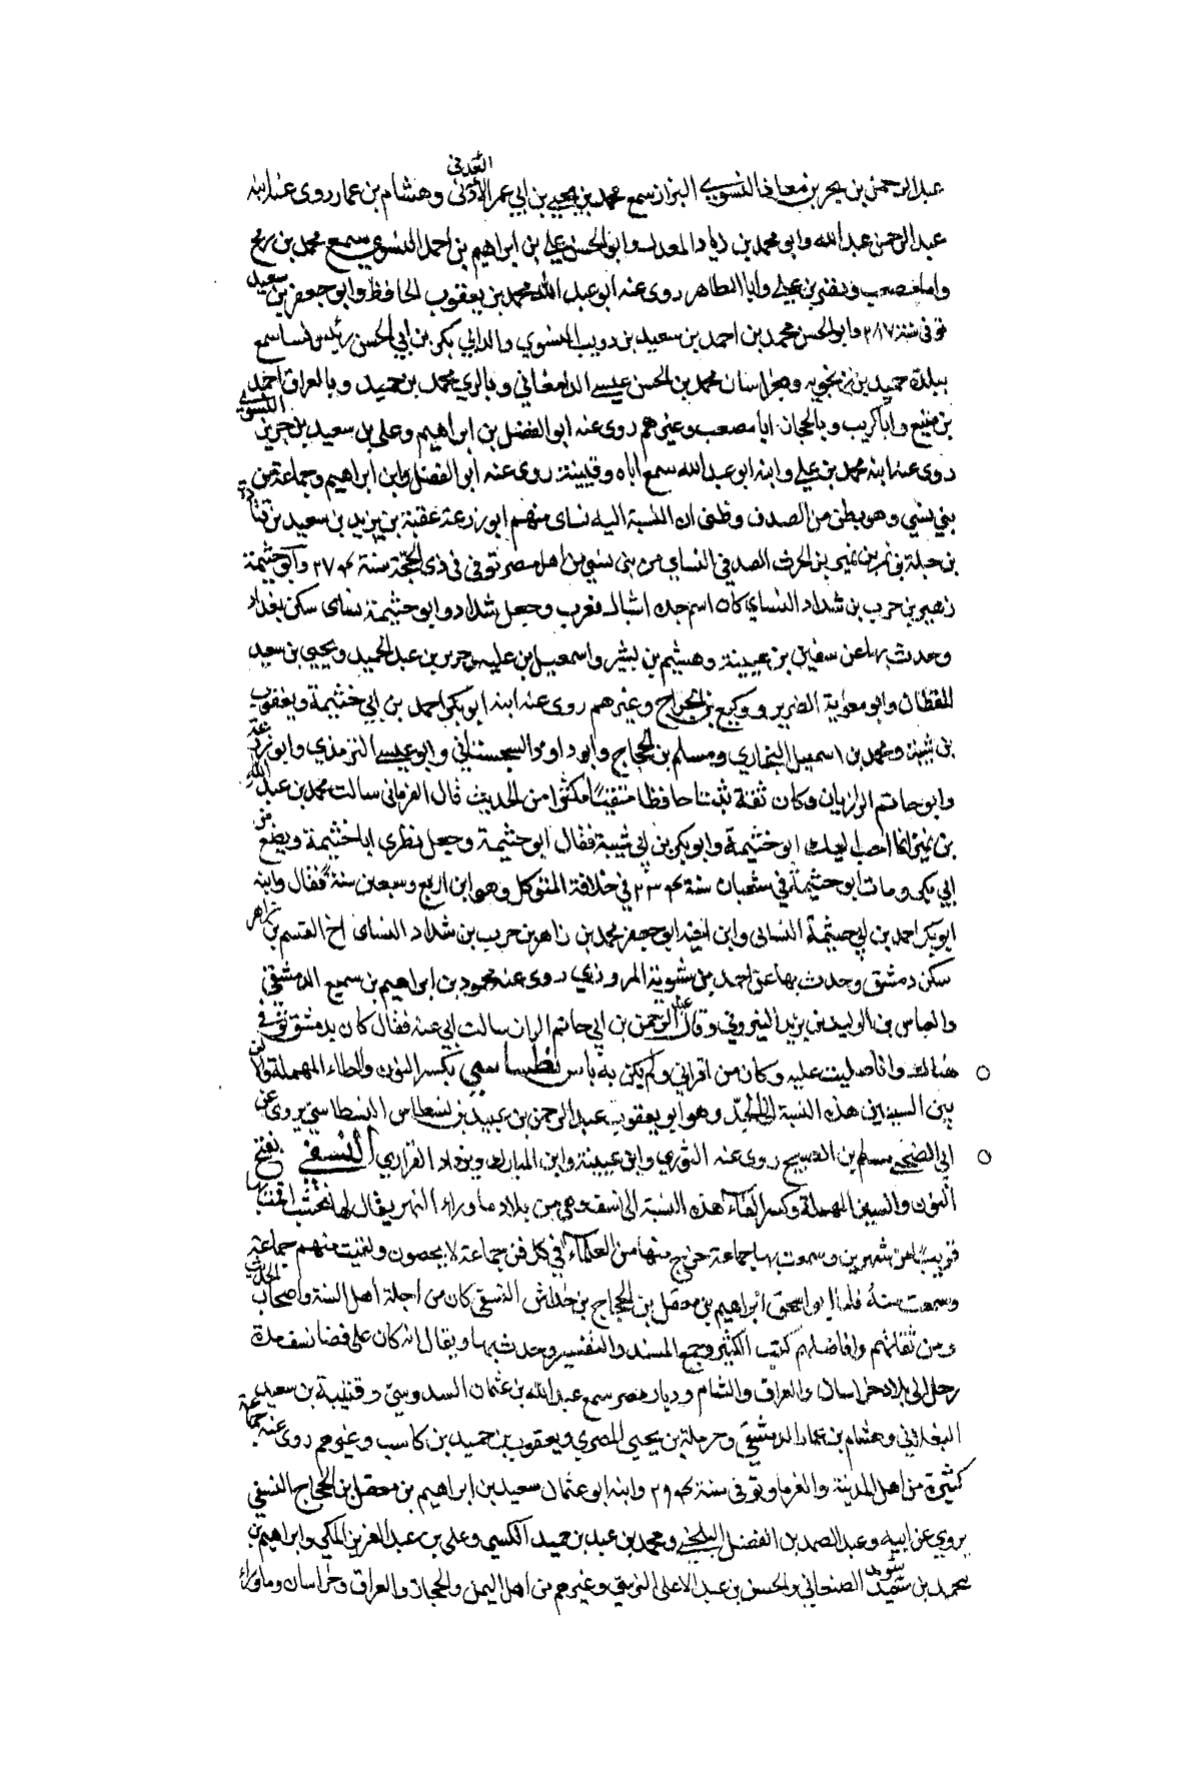 العدني
عبد الرحمن بن بحر بن معاذ النسوي البزاز سمع محمد بن يحيى بن ابي عمر الأذني وهشام بن عمار روى عنه ابنه
عبد الرحمن عبد الله وابو محمد بن زياد المعدل وابو الحسن علي بن ابراهيم بن احمد النسوي سمع محمد بن رمح
وابا مصعب ونصر بن علي وابا الطاهر روى عنه ابو عبد الله محمد بن يعقوب الحافظ وابو جعفر بن سعيد
توفي سنة ٢٨٧ وابو الحسن محمد بن احمد بن سعيد بن دويب النسوي والد ابي بكر بن ابي الحسن رئيس نسا سمع
ببلده حميد بن زنجويه وبخراسان محمد بن الحسن عيسى الدامغاني وبالري محمد بن حميد وبالعراق احمد
بن منيع وابا كريب وبالحجاز ابا مصعب وغيرهم روى عنه ابو الفضل بن ابراهيم وعلي بن سعيد بن جرير النسوي
روى عنه ابنه محمد بن علي وابنه ابو عبد الله سمع اباه وقتيبة روى عنه ابو الفضل بن ابراهيم وجماعة من
بني نسي وهو بطن من الصدف وظني ان النسبة اليه نساى منهم ابو زرعة عقبة بن يزيد بن سعيد بن
بن حبلة بن نمر بن الحرث الصدفي النساي من بني نسي من اهل مصر توفي في ذي الحجة سنة ٢٧٤ وابو خيثمة
زهير بن حرب بن شداد النساي كان اسم جده اشتال فعرب وجعل شداد وابو خيثمة نساى سكن بغداد
وحدث بها عن سفين بن عيينة وهشيم بن بشير واسمعيل بن عليه وجرير بن عبد الحميد ويحيى بن سعيد
القطان وابو معاوية الضرير ووكيع بن الجراح وغيرهم روى عنه ابنه ابو بكر احمد بن ابي خيثمة ويعقوب
بن شيبة ومحمد بن اسمعيل البخاري ومسلم بن الحجاج وابو داود السجستاني وابو عيسى الترمذي وابو زرعة
وابو حاتم الرازيان وكان ثقة ثبتا حافظا متقنا مكثرا من الحديث قال الفرياني سالت محمد بن عبد الله
بن نمير ايما احب اليك ابو خيثمة وابو بكر بن ابي شيبة فقال ابو خيثمة وجعل يطري ابا خيثمة ويضع من
ابي بكر ومات ابو خيثمة في شعبان سنة ٢٣٤ في خلافة المتوكل وهو ابن اربع وسبعين سنة فقال وابنه
ابو بكر احمد بن ابي خيثمة النسائى وابن اخيه ابو جعفر محمد بن زاهر بن حرب بن شداد النساى اخ القسم بن زاهر
سكن دمشق وحدث بها عن احمد بن شبوية المروزي روى عنه محمود بن ابراهيم بن سميع الدمشقى
والعباس بن الوليد بن يزيد البيروتي وقال عبد الرحمن بن ابي حاتم الرازي سالت ابي عنه فقال كان بدمشق توفي
هنالك وانا صليت عليه وكان من اقراني ولم يكن به باس نسطاسي بكسر النون والطاء المهملة والالف
بين السينين هذه النسبة الى الجد وهو ابو يعقوب عبد الرحمن بن عبيد بن نسطاس النسطاسي يروى عن
ابى الضحى مسلم بن الصبيح روى عنه الثوري وابن عيينة وابن المبارك ومروان الفزاري النسفي بفتح
النون والسين المهملة وكسر الفاء هذه النسبة الى نسف وهي من بلاد ما وراء النهر يقال لها نخشب اقمت بها
قريبا من شهرين وسمعت بها جماعة خرج منها من العلماء في كل فن جماعة لا يحصون ولقيت منهم جماعة
وسمعت منهم فاما ابو اسحق ابراهيم بن معقل بن الحجاج بن خداش النسفي كان من اجلة اهل السنة واصحاب الحديث
ومن ثقاتهم وافاضلهم كتب الكثير وجمع المسند والتفسير وحدث بها ويقال انه كان على قضا نسف مدة
رحل الى بلاد خراسان والعراق والشام وديار مصر سمع عبد الله بن عثمان السدوسي وقتيبة بن سعيد
البغلاني وهشام بن عمار الدمشقي وحرملة بن يحيى المصري ويعقوب بن حميد بن كاسب وغيرهم روى عنه جماعة
كثيرة من اهل المدينة والغرباء وتوفي سنة ٢٩٤ وابنه ابو عثمان سعيد بن ابراهيم بن معقل بن الحجاج النسفي
يروي عن ابيه وعبد الصمد بن الفضل البلخي ومحمد بن عبد بن حميد الكسي وعلي بن عبد العزيز المكي وابراهيم بن
محمد بن سويد الصنعاني والحسن بن عبد الاعلى النرسي وغيرهم من اهل اليمن والحجاز والعراق وخراسان وما وراء